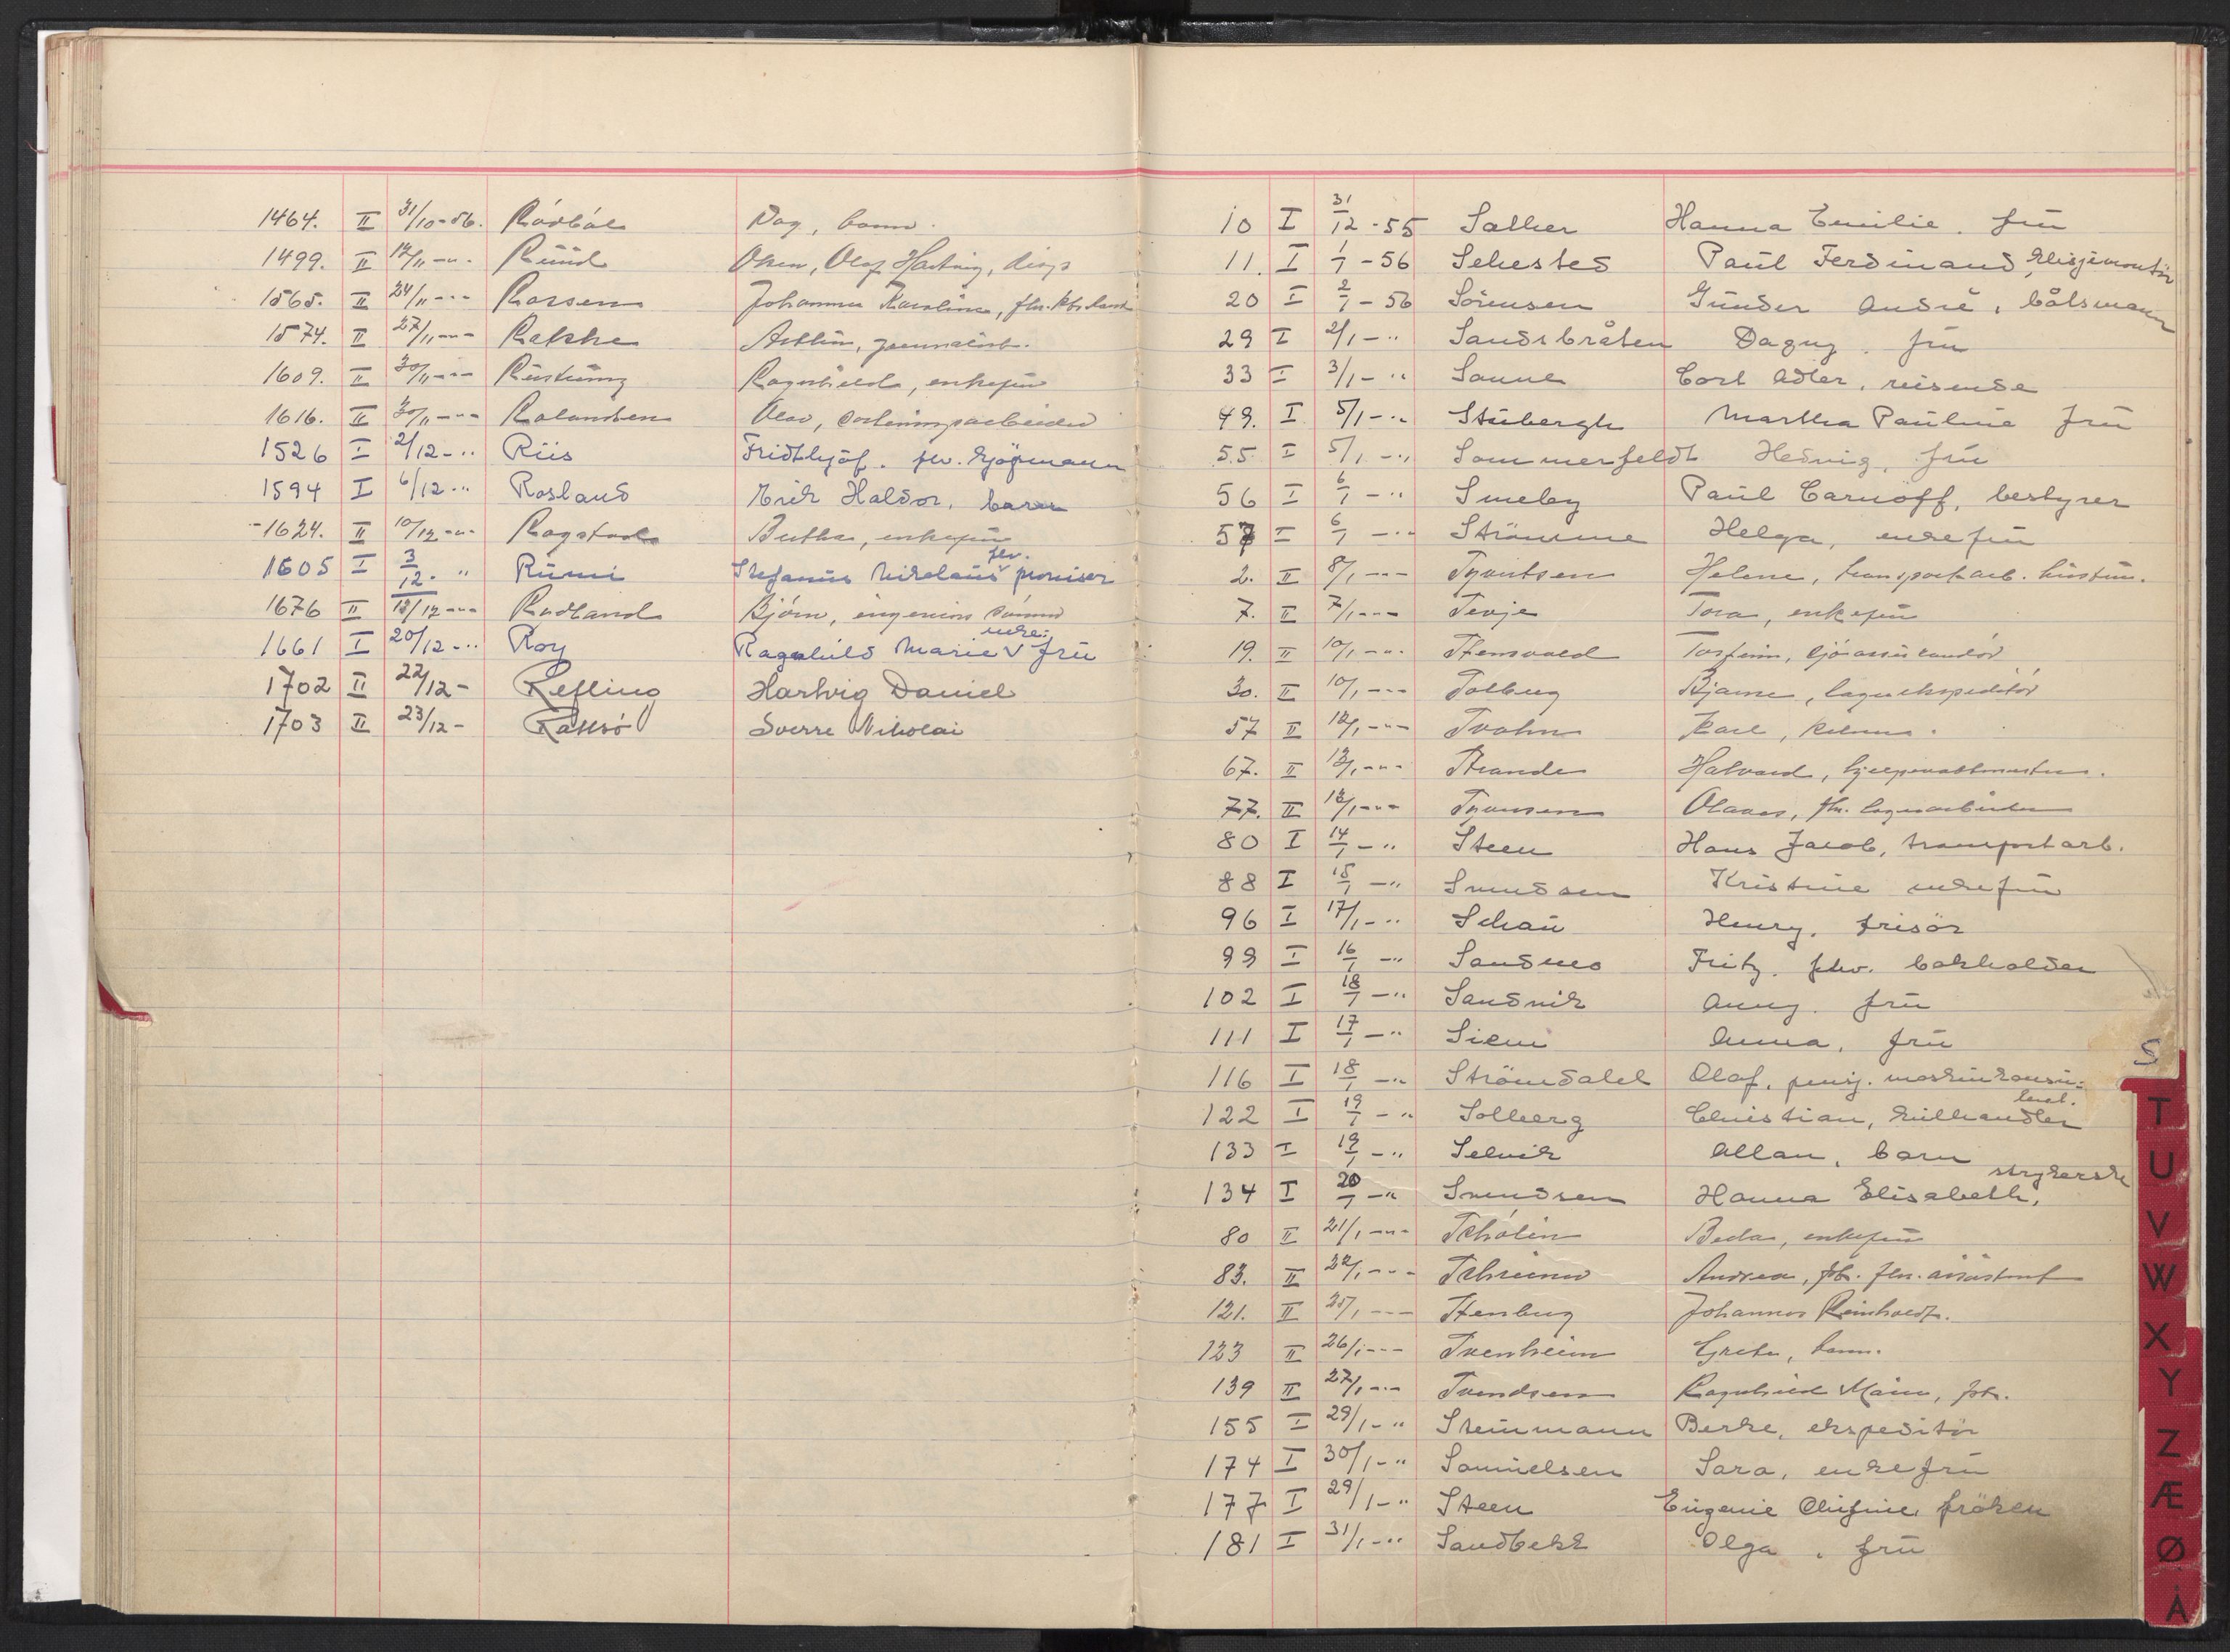 1464. II 31/10-56. Rödbäl Dag, barn.
1499. II 12/11 -"- Rüüd Olaf Hartvig,
1565. II 24/11 -"- Karoline,
1574. II 27/11 -"- Rakke journalist.
1609. II 30/11 -"- Rüstüng Ragnhild, enkefrü
1616. II 30/11 -"- Rolandsen Olav,
1526 I 2/12 - " Riis Fridthjof. fhv. sjöpmann
1594 I 6/12 - " Rosland Erik Haldor. barn
-1624. II 10/12 -"- Rogstad enkefrü
1605 I 3/12. " Rümi Stefanüs Nikolaüs fhv. proviser
1676 II 13/12 -"- Rudland Björn, ingeniör
1661 I 20/12 - " Roy Ragnhild Marie V enke: frü
1702 II 22/12 - Refling Hartvig Daniel
1703 II 23/12 - Raksö Sverre Nikolai
10 I 31/12 - 55 Sæther Hanna Emilie. frü
11. I 1/1 - 56 Sehested Paül Ferdinand,
20 I 2/1 - 56 Sörensen Günder André, båtsmann
29 I 2/1 - " Sandsbråten Dagny. frü
33 I 3/1 - " Sanne Carl Adler, reisende
49. I 5/1 - " Stübergh Martha Paüline frü
55 I 5/1 - " Sommerfeldt Hedvig, frü
56 I 6/1 - " Smeby Paül Carnoff, bestyrer
57 I 6/1 - " Strömme Helga, enkefrü
2. II 8/1 -"- Syvertsen Helene, transportarb. hüstrü.
7. II 7/1 -"- Tora, enkefrü
19. II 10/1 -"- Stensvold Torfinn,
30. II 10/1 -"- Solberg Bjarne, lagerekspeditör
57 II 12/1 -"- Karl,
67. II 13/1 -"- Strande Halvard,
77. II 13/1 -"- Syversen fhv. lagerarbeider
80 I 14/1 - " Steen Hans Jacob, transportarb.
88 I 15/1 - " Svendsen Kristine enkefrü
96 I 17/1 - " Schaü Henry. frisör
99 I 16/1 - " Sandmo Fritz. fhv. bokholder
102 I 18/1 - " Sandvik Anny. frü
111 I 17/1 - " Siem Anna, frü
116 I 18/1 - " Strömdahl Olaf. pensj. maskinkonsü:
lent.
S
122 I 19/1 - " Solberg Christian, külhandler
133 I 19/1 - " Selvik Allan, barn
134 I 20/1 - " Svendsen Hanna Elisabeth, strykerske
80 II 21/1 -"- Schölin Beda, enkefrü
83. II 22/1 -"- Andrea, frk. fhv. assistent
121. II 25/1 -"- Stenberg Johannes Reinholdt.
123 II 26/1 -"- Svenheim Grete, barn.
139 II 27/1 -"- Svendsen Ragnhild frk.
155 I 29/1 - " Steinmann Berke, ekspeditör
174 I 30/1 - " Samüelsen Sara, enkefrü
177 I 29/1 - " Steen Eügenie Olüfine, fröken
181 I 31/1 - " Sandbekk Olga, frü
T
U
V
W
X
Y
Z
Æ
Ø
Å